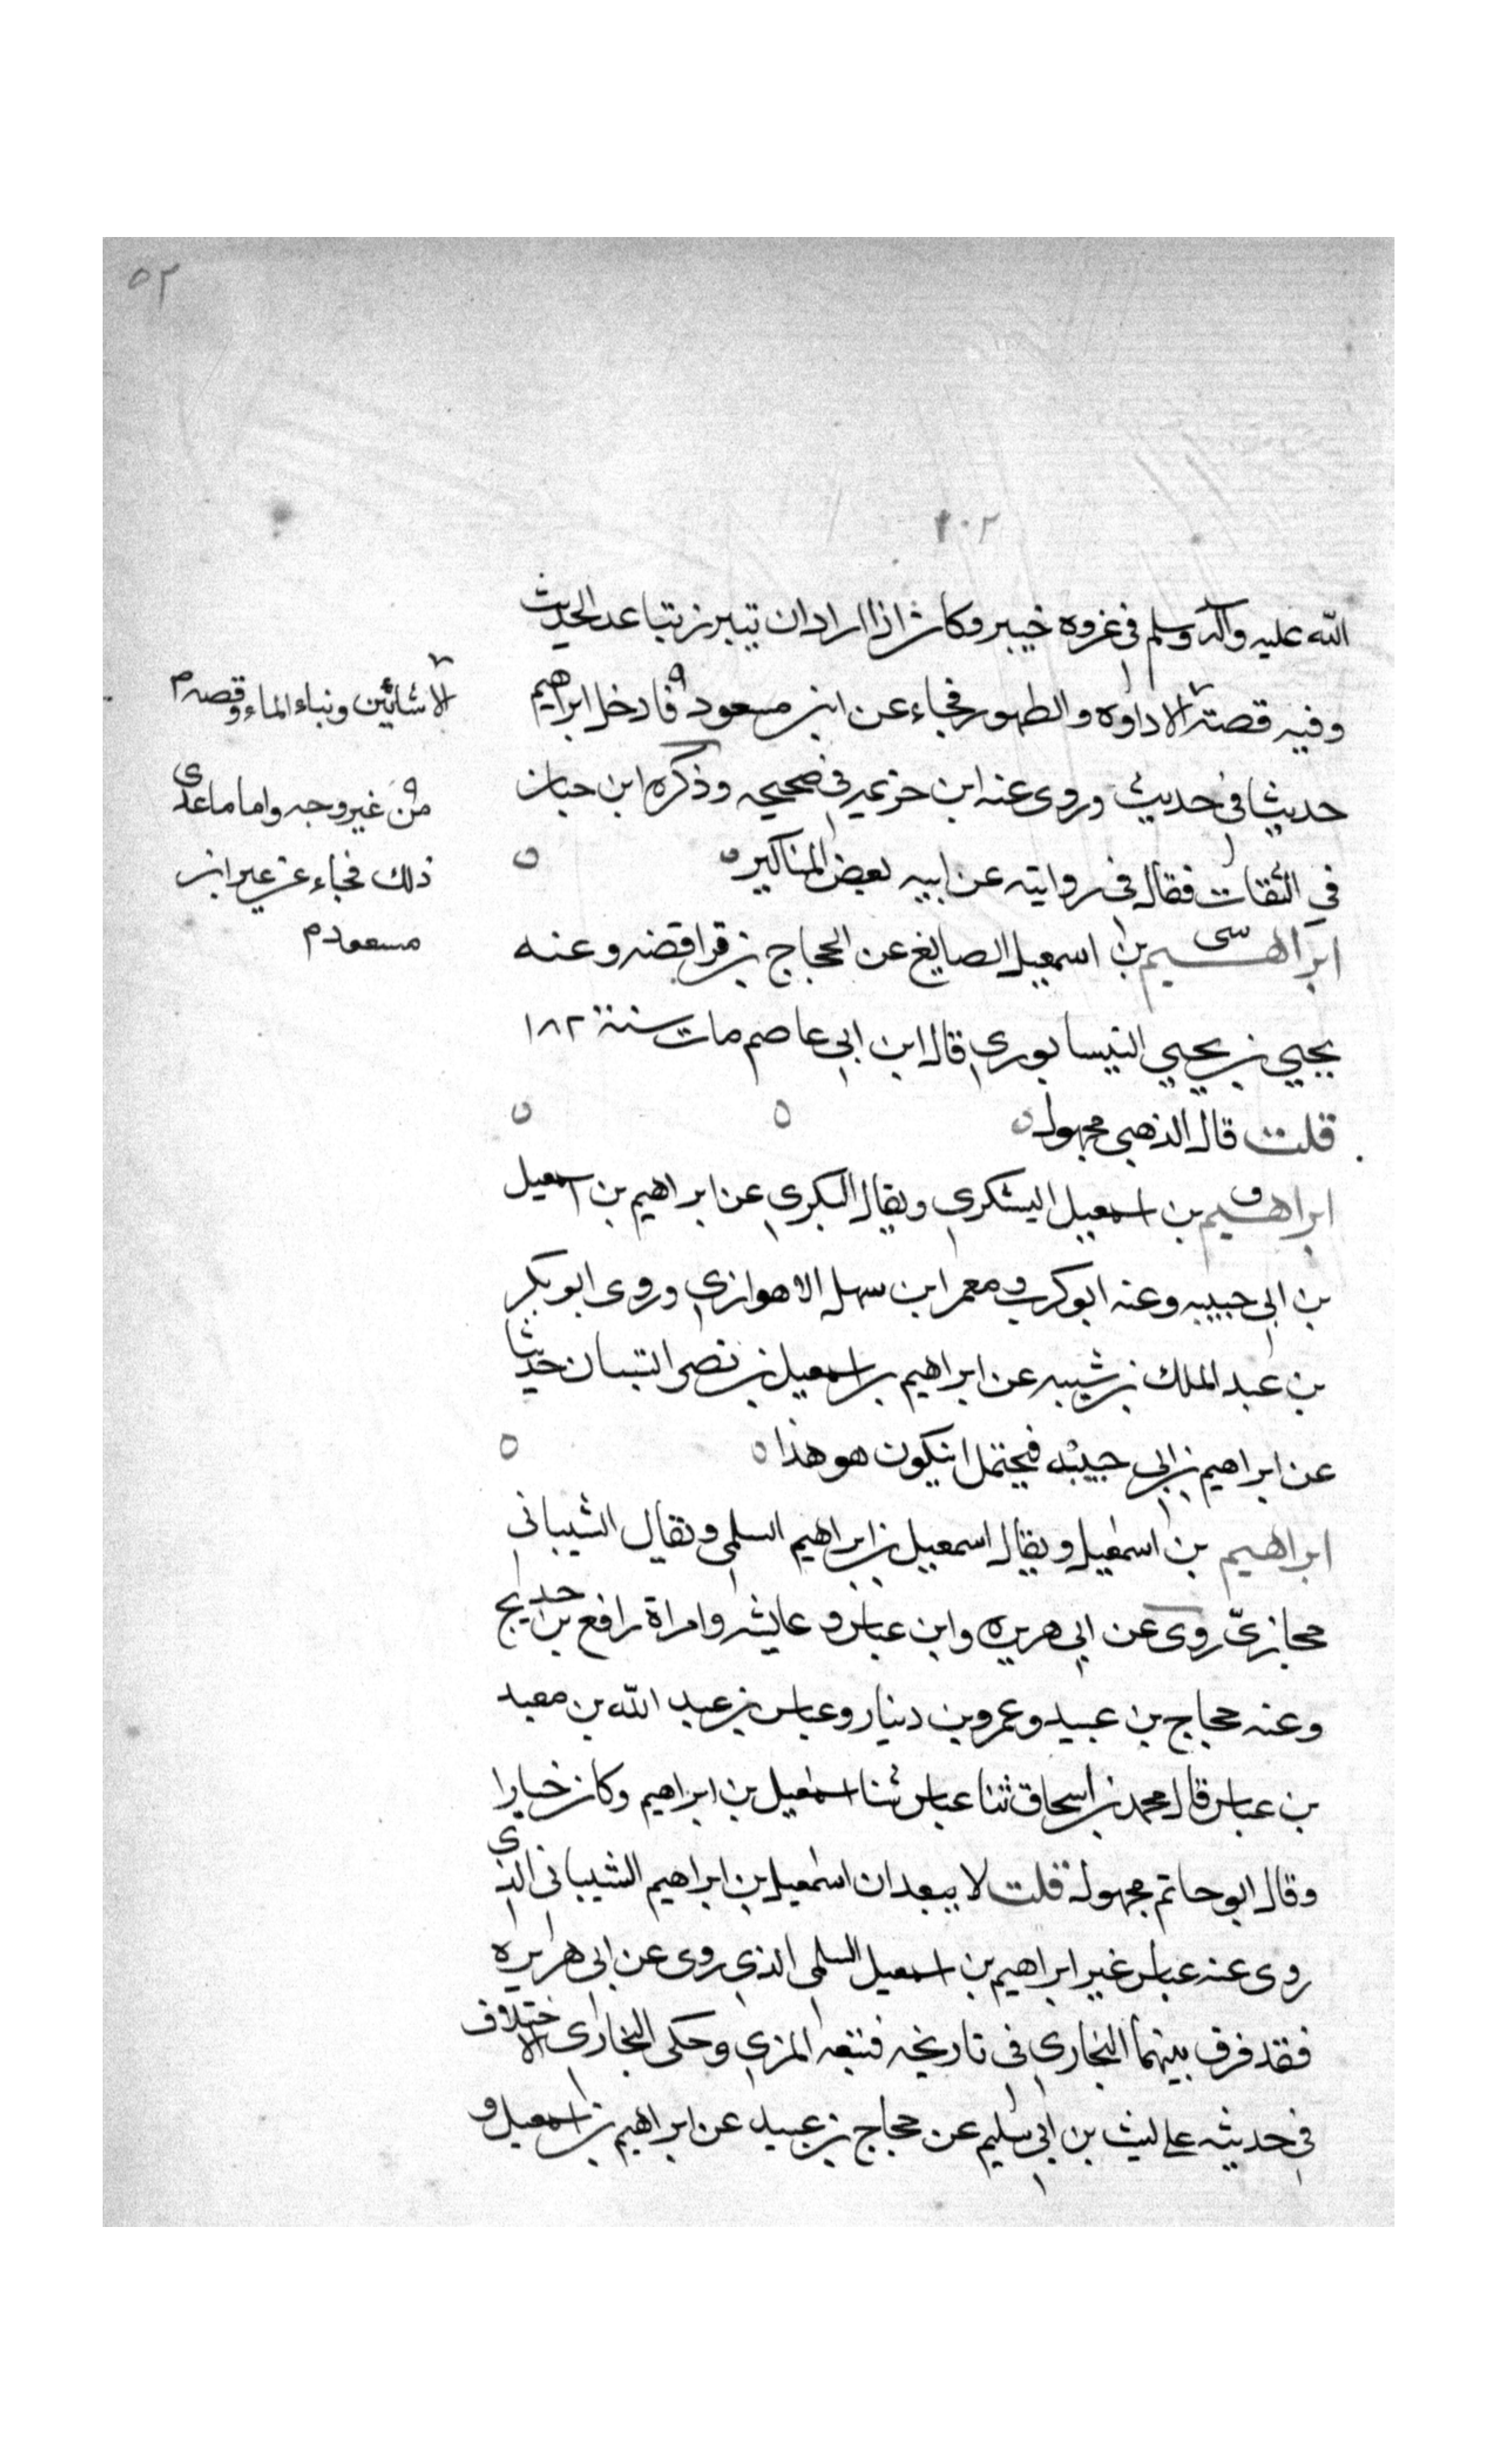 ٥٢
٢٠٢
الله عليه وآله وسلم في غزوه خيبر وكان اذا اراد ان يتبرز تباعد الحديث
وفيه قصة الاداوه والطهور فجاء عن ابن مسعود فادخل ابراهيم
حديثا في حديث وروى عنه ابن خزيمه في صحيحه وذكره ابن حبان
في الثقات فقال في روايته عن ابيه بعض المناكير
ابراهيم بن اسمعيل الصايغ عن الحجاج بن فرافضه وعنه
يحيي بن يحيي النيسابوري قال ابن ابي عاصم مات سنة ١٨٢
قلت قال الذهبي مجهول
ابراهيم بن اسمعيل اليشكري ويقال البكري عن ابراهيم بن اسمعيل
بن ابي حبيبه وعنه ابو كريب ومعمر ابن سهل الاهوازي وروى ابو بكر
بن عبد الملك بن شيبه عن ابراهيم بن اسمعيل بن نصر التبان حديثا
عن ابراهيم بن ابي حبيبه فيحتمل ان يكون هو هذا
ابراهيم بن اسمعيل ويقال اسمعيل بن ابراهيم السلمي ويقال الشيباني
حجازيّ روى عن ابي هريره وابن عباس و عايشه وامراة رافع بن خديج
وعنه حجاج بن عبيد وعمرو بن دينار وعباس بن عبد الله بن معبد
بن عباس قال محمد بن اسحاق ثنا عباس ثنا اسمعيل بن ابراهيم وكان خيارا
وقال ابو حاتم مجهول قلت لا يبعد ان اسمعيل بن ابراهيم الشيباني الذي
روى عنه عباس غير ابراهيم بن اسمعيل السلمي الذي روى عن ابي هريره
فقد فرق بينهما البخاري في تاريخه فتبعه المزي وحكى البخارى الاختلاف
في حديثه على ليث بن ابي سليم عن حجاج بن عبيد عن ابراهيم بن اسمعيل و
الاشائين ونباء الماء وقصه م
من غير وجه واما ما عدى
ذلك فجاء عن غير ابن
مسعود م